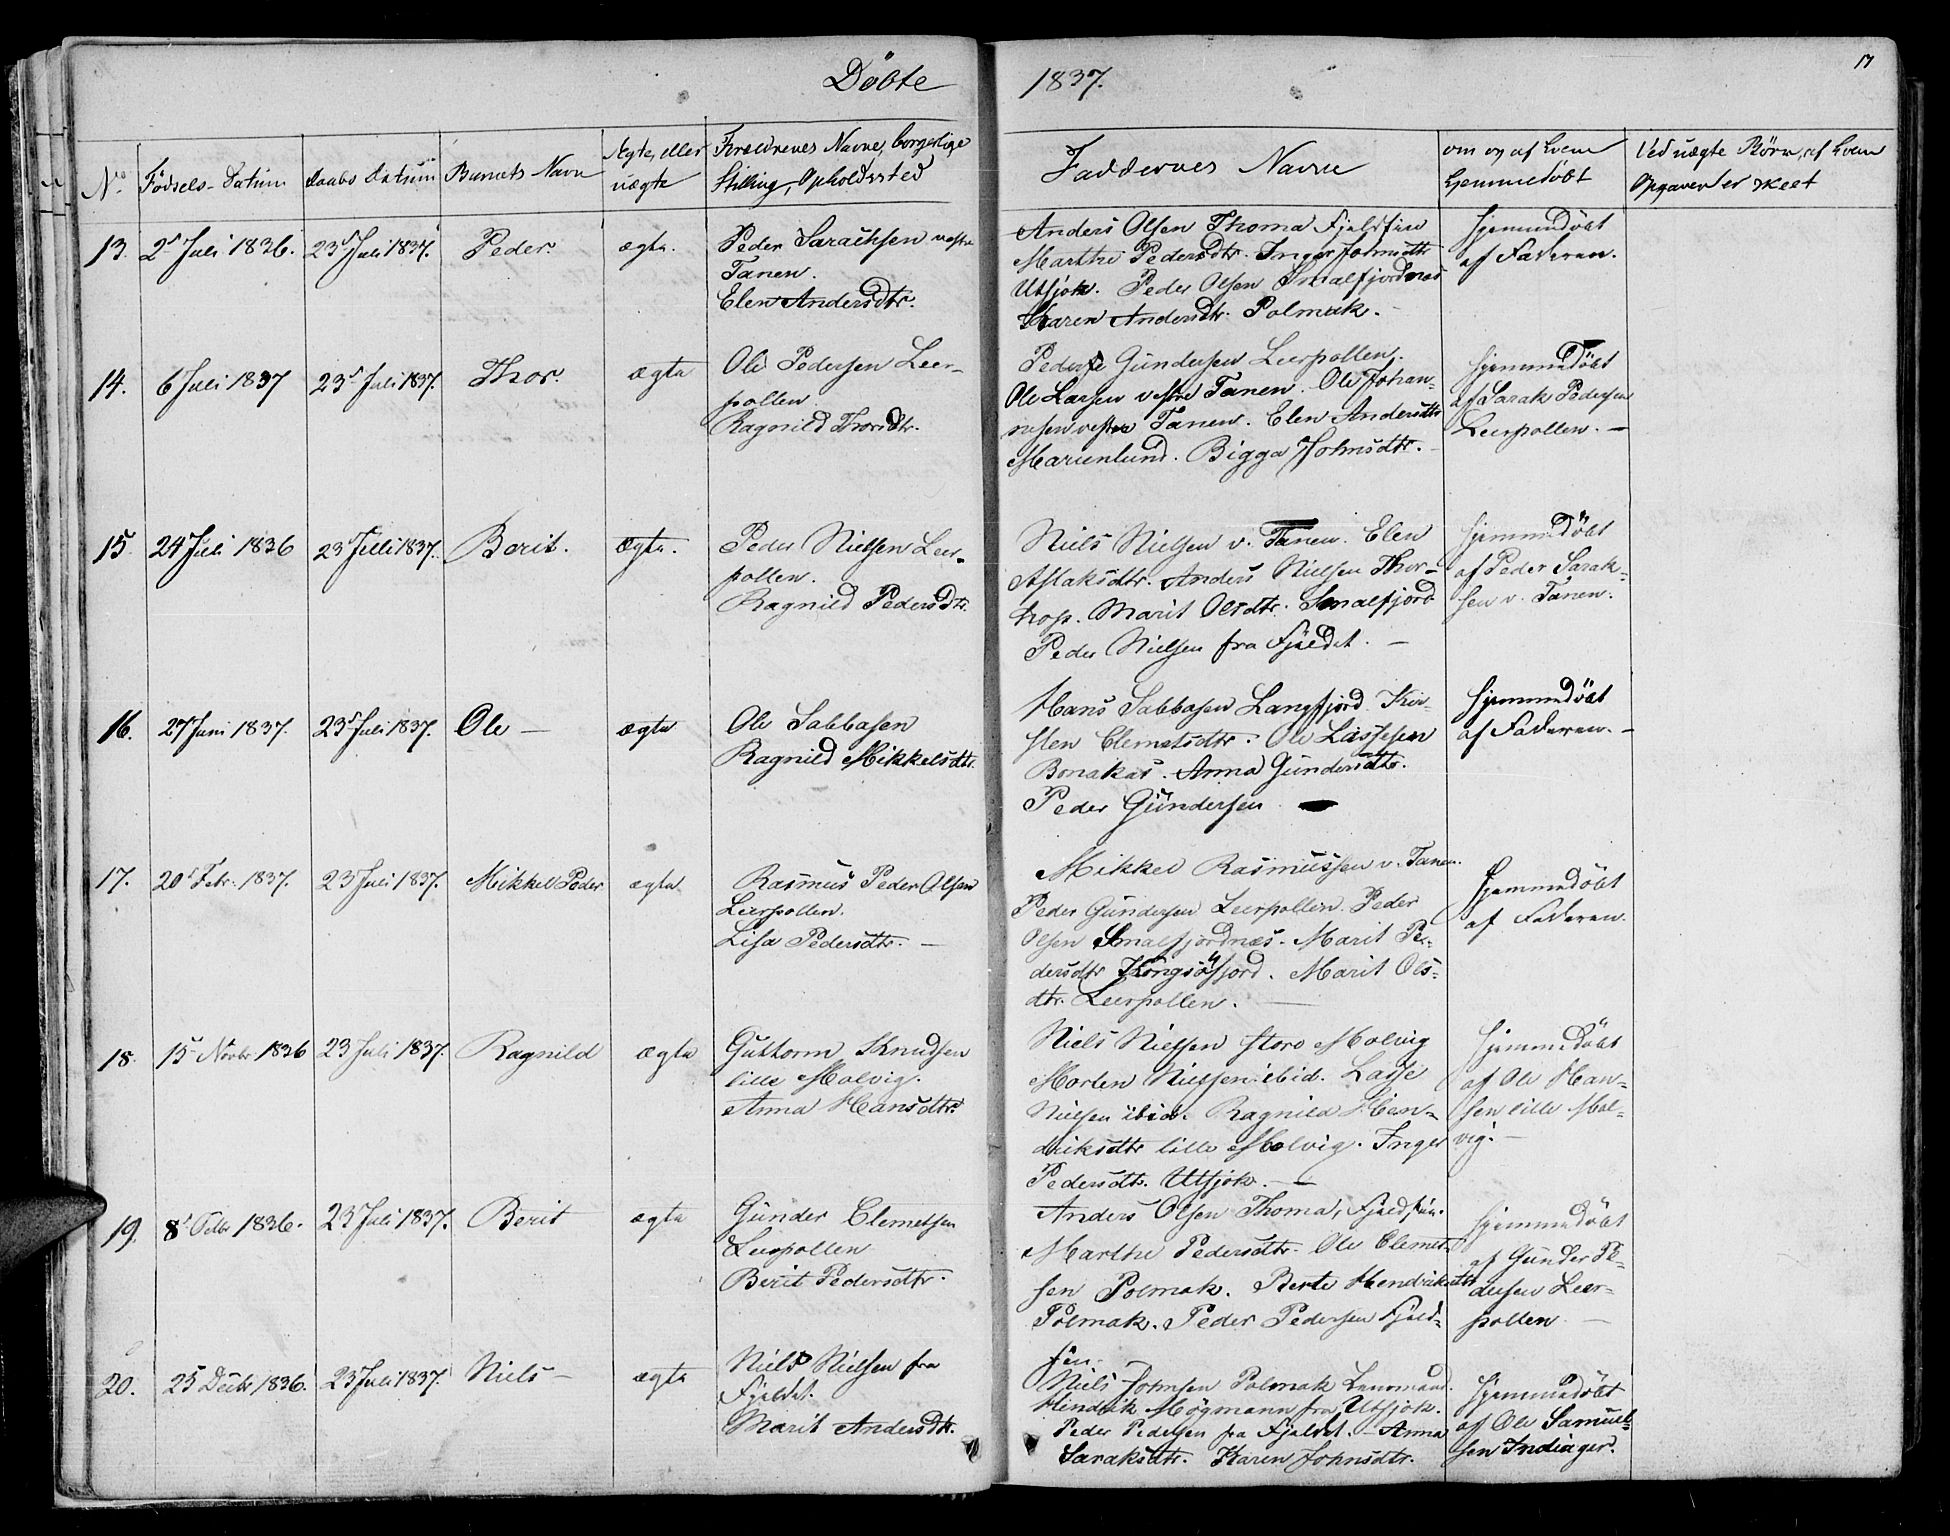 Döbte
1837.
17
No. Födsels-Datum Daabs Datum Barnets Navn Ægte, eller uægte Forældrenes Navne, borgerlige Stilling, Opholdssted
Faddernes Navne
om og af hvem hjemmedöbt
Ved uægte Börn, af hvem Opgaven er skeet
13. 2d Juli 1836. 23d Juli 1837. Peder. ægte. Peder Sarachsen vestre
Tanen.
Elen Andersdtr.
Anders Olsen Thoma Fjeldfin
Marthe Pedersdtr. Inger Johnsdtr
Utsjok. Peder Olsen Smalfjordnæs
Karen Andersdtr. Polmak.
Hjemmedöbt
af Faderen.
14. 6 Juli 1837 23d Juli 1837. Thor. ægte Ole Pedersen Leer-
pollen.
Ragnild Thorsdtr.
Peder Gundersen Leerpollen.
Ole Larsen vestre Tanen. Ole Johan-
nesen vestre Tanen. Elen Andersdtr
Marienlund. Bigga Johnsdtr.
Hjemmedöbt
af Sarak Pedersen
Leerpollen. —
15. 24 Juli 1836 23d Julii 1837. Berit. ægte. Peder Nielsen Leer-
pollen.
Ragnild Pedersdtr.
Niels Nielsen v. Tanen. Elen
Aslaksdtr. Anders Nielsen Thor-
hop. Marit Olsdtr. Smalfjord
Peder Nielsen fra Fjeldet. —
Hjemmedöbt
af Peder Sarak-
sen v. Tanen.
16. 27 Juni 1837. 23d Juli 1837. Ole — ægte Ole Sabbasen
Ragnild Mikkelsdtr.
Hans Sabbasen Langfjord. Kir-
sten Clemetsdtr. Ole Lassesen
Bonakas. Anna Gundersdtr.
Peder Gündersen
Hjemmedöbt
af Faderen. —
17. 20d Febr. 1837. 23 Juli 1837. Mikkel Peder ægte Rasmus Peder Olsen
Leerpollen.
Lisa Pedersdtr. —
Mikkel Rasmussen v. Tanen.
Peder Gundersen Leerpollen. Peder
Olsen Smalfjordnæs. Marit Pe-
dersdtr Kongsöfjord. Marit Ols-
dtr. Leerpollen. —
Hjemmedöbt
af Faderen.
18. 15 Novbr 1836 23 Juli 1837. Ragnild ægte Guttorm Knudsen
lille Molvig.
Anna Hansdtr.
Niels Nielsen store Molvig
Morten Nielsen ibid. Lasse
Nielsen ibid. Ragnild Hen-
driksdtr lille Molvig. Inger
Pedersdtr. Utsjok. —
Hjemmedöbt
af Ole Han-
sen lille Mol-
vig. —
19. 8d 1836. 23 Juli 1837. Berit ægte Günder Clemetsen
Leerpollen
Berit Pedersdtr.
Anders Olsen Thoma, Fjeldfin.
Marthe Pedersdtr. Ole Clemet-
sen Polmak. Berte Hendriksdtr
Polmak. Peder Pedersen Fjeld-
fin.
Hjemmedöbt
af Gunder Pe-
dersen Leer-
pollen —
20. 25 Decbr 1836. 23 Juli 1837. Niels — ægte Niels Nielsen fra
Fjeldet.
Marit Andersdtr.
Niels Johnsen Polmak Lensmand.
Hendrik Högmann fra Utsjok.
Peder Pedersen fra Fjeldet. Anna
Saraksdtr. Karen Johnsdtr.
Hjemmedöbt
af Ole Samuel-
sen Indiager.